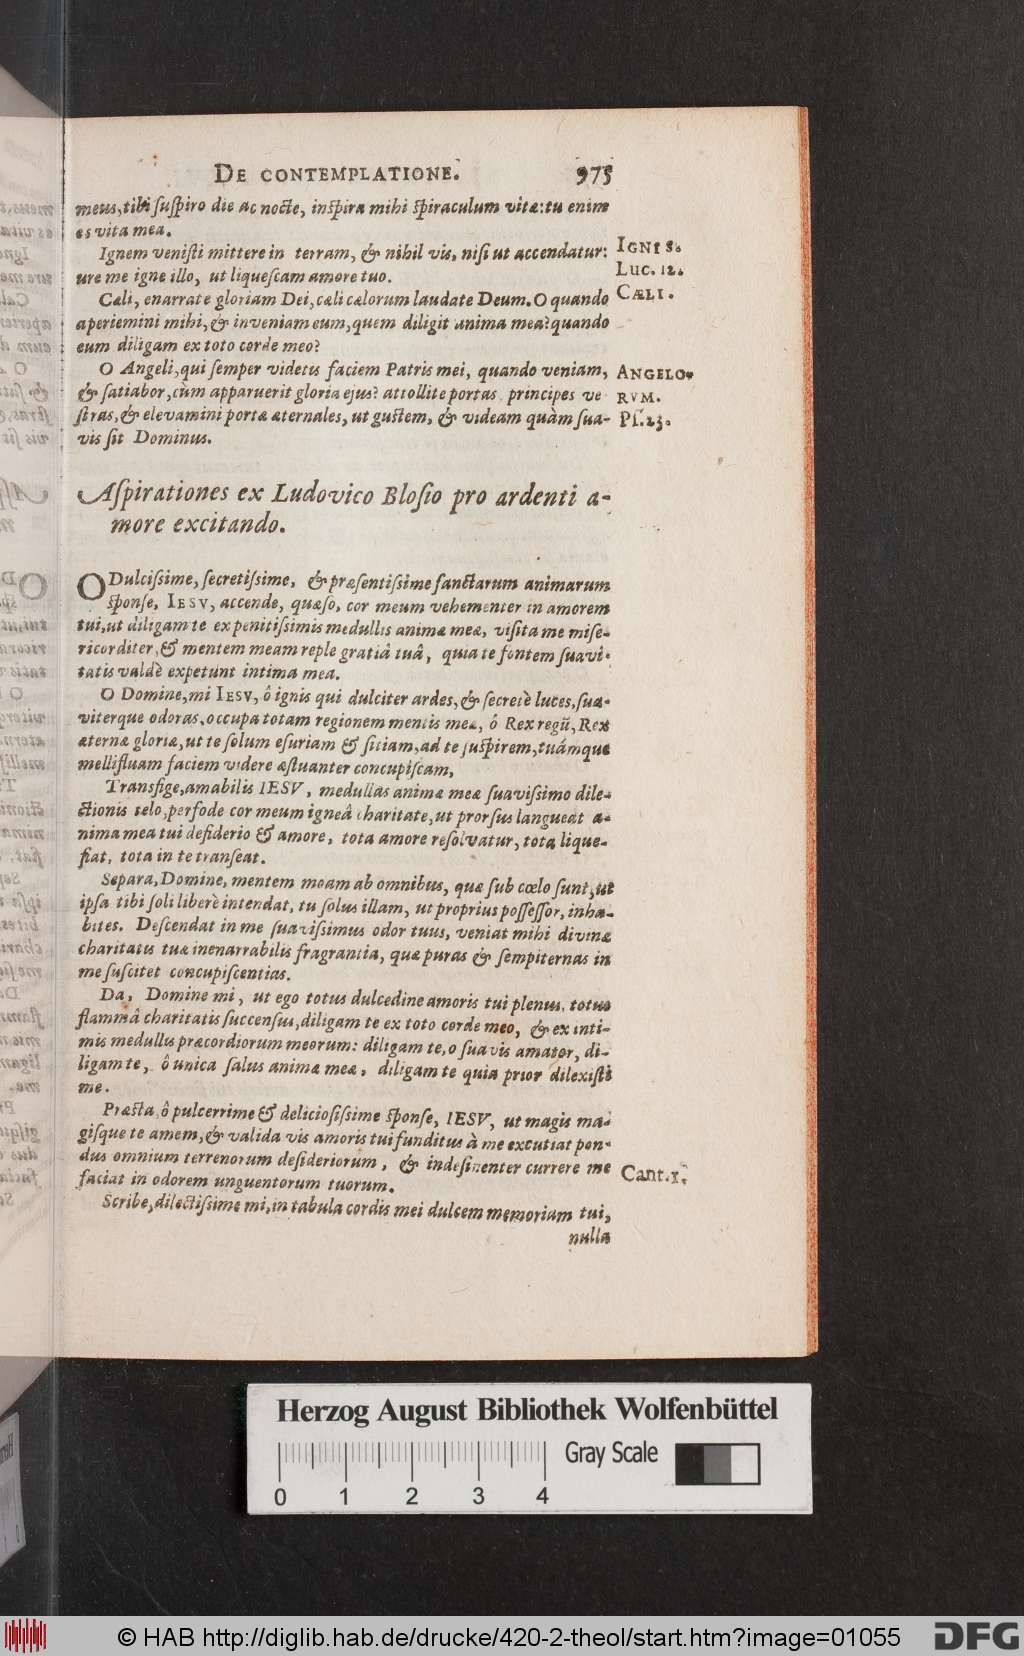 DE CONTEMPLATIONE. 975
meus, tibi ſuſpiro die ac nocte, inſpira mihi ſpiraculum vitæ: tu enim
es vita mea.
Ignem veniſti mittere in terram, & nihil vis, niſi ut accendatur: IGNIS.
ure me igne illo, ut liqueſcam amore tuo. Luc. 12.
Cæli, enarrate gloriam Dei, cæli cælorum laudate Deum. O quando CÆLI.
aperiemini mihi, & inveniam eum, quem diligit anima mea? quando
eum diligam ex toto corde meo?
O Angeli, qui ſemper videtis faciem Patris mei, quando veniam, ANGELO-
& ſatiabor, cùm apparuerit gloria ejus? attollite portas principes ve RVM.
ſtras, & elevamini portæ æternales, ut guſtem, & videam quàm ſua- Pſ. 23.
vis ſit Dominus.
Aſpirationes ex Ludovico Bloſio pro ardenti a-
more excitando.
O Dulciſsime, ſecretiſsime, & præſentiſsime ſanctarum animarum
ſponſe, IESV, accende, quæſo, cor meum vehementer in amorem
tui, ut diligam te ex penitiſsimis medullis animæ meæ, viſita me miſe-
ricorditer, & mentem meam reple gratiâ tuâ, quia te fontem ſuavi-
tatis valdè expetunt intima mea.
O Domine, mi IESV, ô ignis qui dulciter ardes, & ſecretè luces, ſua-
viterque odoras, occupa totam regionem mentis meæ, ô Rex regũ, Rex
æternæ gloriæ, ut te ſolum eſuriam & ſitiam, ad te ſuſpirem, tuámque
mellifluam faciem videre æſtuanter concupiſcam,
Transfige, amabilis IESV, medullas animæ meæ ſuaviſsimo dile-
ctionis telo, perfode cor meum igneâ charitate, ut prorſus langueat a-
nima mea tui deſiderio & amore, tota amore reſolvatur, tota lique-
fiat, tota in te tranſeat.
Separa, Domine, mentem meam ab omnibus, quæ ſub cœlo ſunt, ut
ipſa tibi ſoli liberè intendat, tu ſolus illam, ut proprius poſſeſſor, inha-
bites. Deſcendat in me ſuaviſsimus odor tuus, veniat mihi divinæ
charitatis tuæ inenarrabilis fragrantia, quæ puras & ſempiternas in
me ſuſcitet concupiſcentias.
Da, Domine mi, ut ego totus dulcedine amoris tui plenus, totus
flammâ charitatis ſuccenſus, diligam te ex toto corde meo, & ex inti-
mis medullis præcordiorum meorum: diligam te, o ſuavis amator, di-
ligam te, ô unica ſalus animæ meæ, diligam te quia prior dilexiſti
me.
Præſta, ô pulcerrime & delicioſiſsime ſponſe, IESV, ut magis ma-
giſque te amem, & valida vis amoris tui funditus à me excutiat pon-
dus omnium terrenorum deſideriorum, & indeſinenter currere me Cant. 1.
faciat in odorem unguentorum tuorum.
Scribe, dilectiſsime mi, in tabula cordis mei dulcem memoriam tui,
nulla
Herzog August Bibliothek Wolfenbüttel
Gray Scale
0 1 2 3 4
© HAB http://diglib.hab.de/drucke/420-2-theol/start.htm?image=01055 DFG